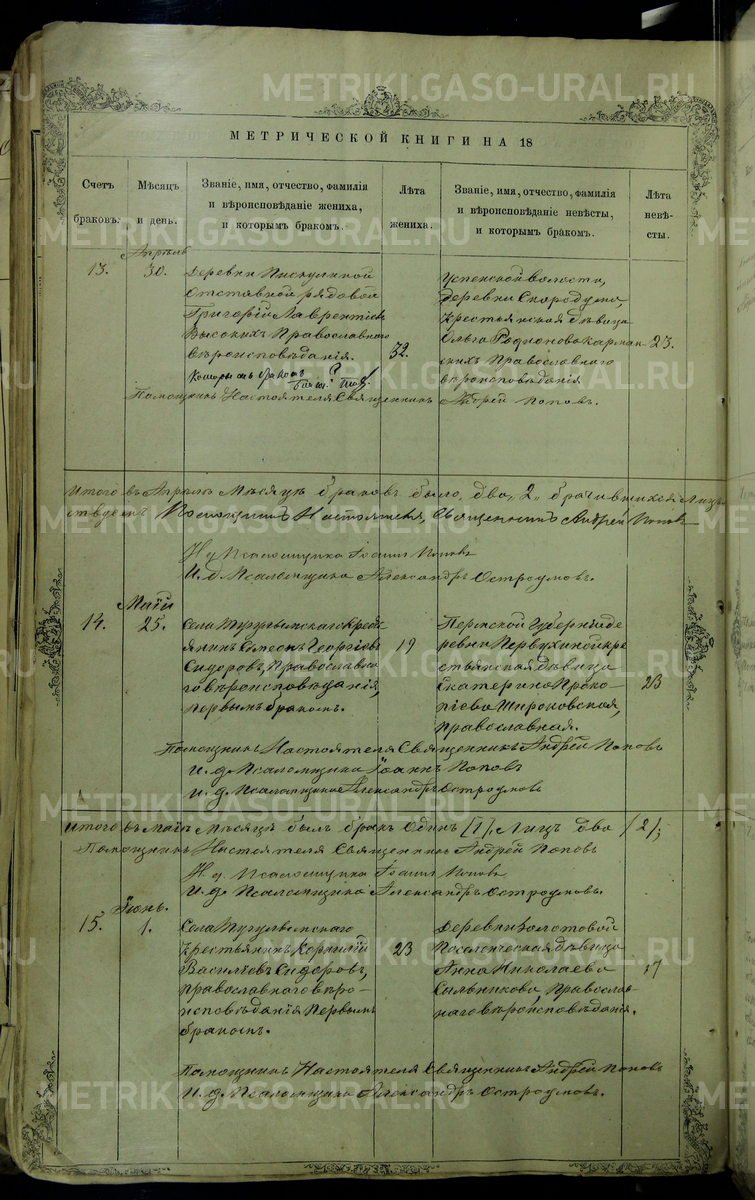 METRIKI.GASO-URAL.RU
МЕТРИЧЕСКОЙ КНИГИ НА 18
Счетъ браковъ.
Мѣсяцъ и день.
Званіе, имя, отчество, фамилія и вѣроисповѣданіе жениха, и которымъ бракомъ.
Лѣта жениха.
Званіе, имя, отчество, фамилія и вѣроисповѣданіе невѣсты, и которымъ бракомъ.
Лѣта невѣ-сты.
Апрѣль
13.
30.
Деревни Пискулиной
Отставной рядовой
Григорій Лаврентіевъ
Высокихъ Православнаго
вѣроисповѣданія.
Которымъ бракомъ
32.
Успенской волости,
деревни Скородума
Крестьянская дѣвица
Ольга Родионова Карман
скихъ Православнаго
вѣроисповѣданія
23.
Помощникъ Настоятеля Священникъ Андрей Поповъ.
Итого въ Апрѣлѣ Мѣсяцѣ браковъ было, два „2„ брачившихся Лицъ
Помощникъ Настоятеля, Священникъ Андрей Поповъ
Псаломщика Іоаннъ Поповъ
И. д. Псаломщика Александръ Остроумовъ.
Маій
14.
25.
Села Тугулымскаго Крестъ
янинъ Георгіевъ
Сидоровъ, Православна
го вѣроисповѣданія,
первымъ бракомъ.
19
Пермской Губерніи де
ревни Первухиной кре
стьянская дѣвица
Екатерина Проко-
піева Широковская,
православная.
23
Помощникъ Настоятеля Священникъ Андрей Поповъ
и. д. Псаломщика Іоаннъ Поповъ
и. д. Псаломщика Александръ Остроумовъ
Итого въ Маіѣ Мѣсяцѣ былъ бракъ Одинъ [1], Лицъ два [2];
Помощникъ Настоятеля Священникъ Андрей Поповъ
Псаломщика Іоаннъ Поповъ
И. д. Псаломщика Александръ Остроумовъ.
Іюнь.
15.
1.
Села Тугулымскаго
Крестьянинъ Корнилій
Василіевъ Сидоровъ,
православнаго вѣро-
исповѣданія Первымъ
бракомъ.
23
Деревни Золотовой
дѣвица
Анна Николаева
Сальникова, Православ-
наго вѣроисповѣданія.
17
Помощникъ Настоятеля Священникъ Андрей Поповъ
И. д. Псаломщика Александръ Остроумовъ.